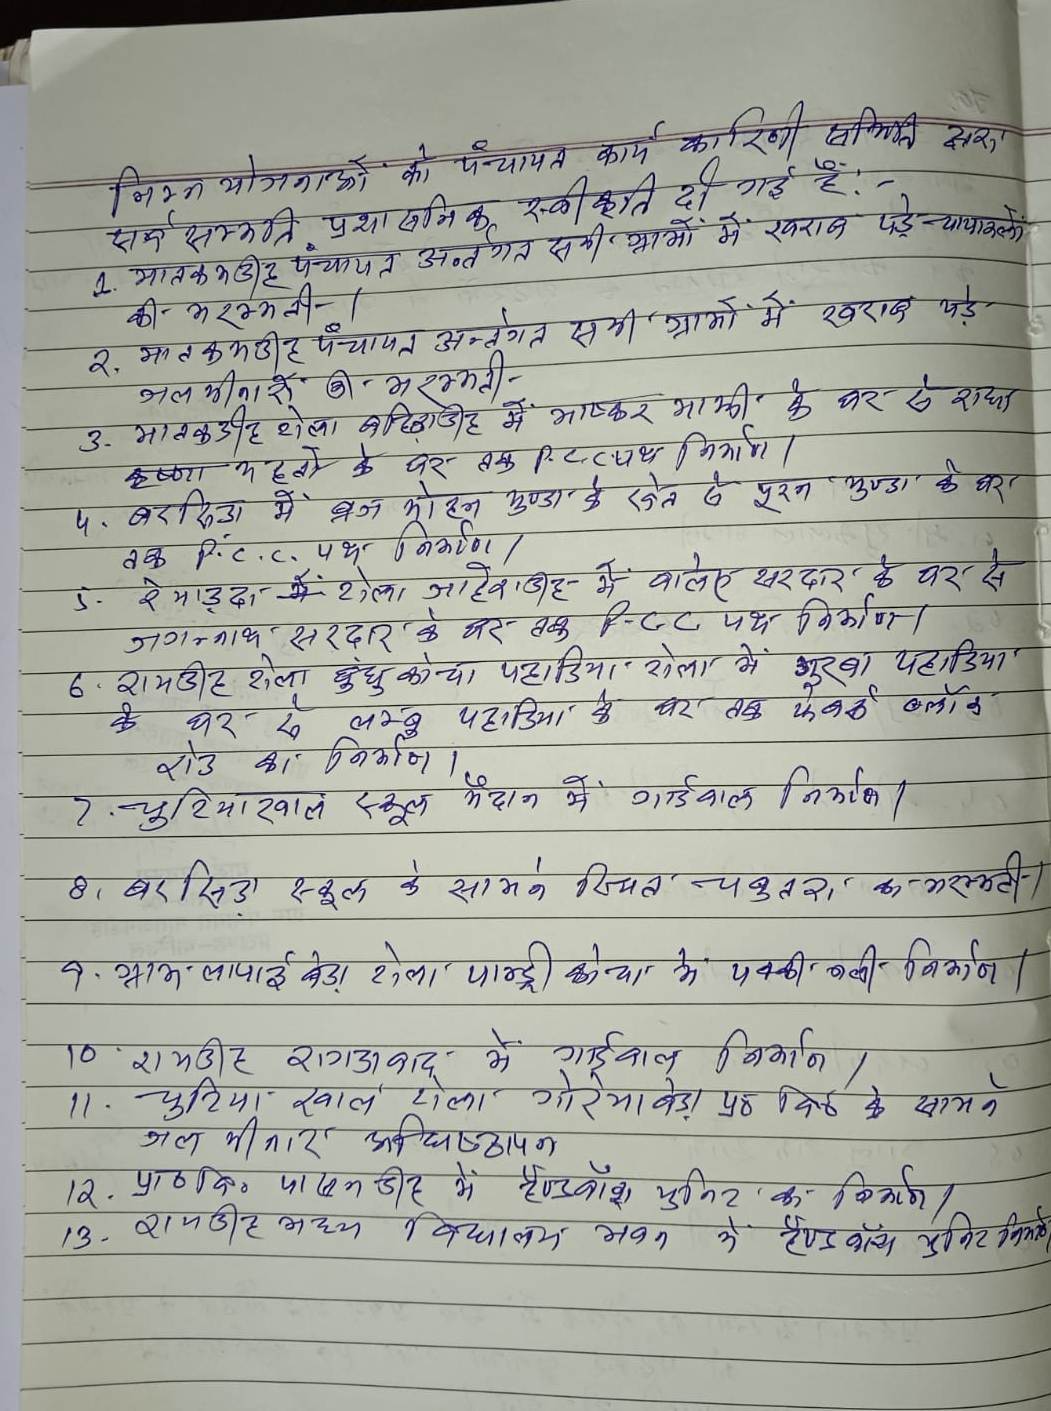 निम्न योजनाओं को पंचायत कार्य कारिणी समिति द्वारा
सर्व सम्मति प्रशासनिक स्वीकृति दी गई है:-
1. भातकमडीह पंचायत अन्तर्गत सभी ग्रामों में खराब पड़े चापाकलों
की मरम्मती।
2. भातकमडीह पंचायत अन्तर्गत सभी ग्रामों में खराब पड़े
जल मीनारों की मरम्मती
3. भातकडीह टोला में भाष्कर माझी के घर से राधा
कृष्णा महतो के घर तक P.C.C पथ निर्माण।
4. बरसिडा में ब्रज मोहन मुण्डा के खेत से पूरन मुण्डा के घर
तक P.C.C. पथ निर्माण।
5. टोला में सरदार के घर से
जगन्नाथ सरदार के घर तक P.C.C पथ निर्माण।
6. रामडीह टोला पहाडिया टोला में पहाडिया
के घर से लम्बु पहाडिया के घर तक ब्लॉक
रोड का निर्माण।
7. चुटियाखाल स्कूल मैदान में गार्डवाल निर्माण।
8. बरसिड़ा स्कूल के सामने स्थित चबुतरा का मरम्मती।
9. ग्राम लापाईबेड़ा टोला कोचा में पक्की नली निर्माण।
10. रामडीह में गार्डवाल निर्माण।
11. चुटिया खाल टोला गोरेयाबेड़ा प्रा० वि० के सामने
जल मीनार अधिष्ठापन
12. प्रा० वि० में हैण्डवॉश युनिट का निर्माण।
13. रामडीह मध्य विद्यालय भवन में हैण्डवॉश युनिट निर्माण